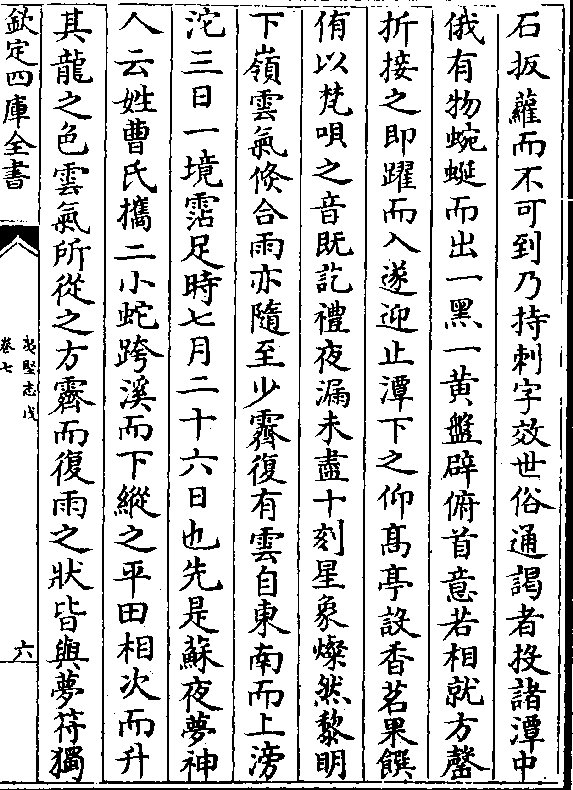 石扳蘿而不可到乃持刺字效世俗通謁者投諸潭中
俄有物蜿蜒而出一黑一黄盤辟俯首意若相就方罄
折接之即躍而入遂迎止潭下之仰髙亭設香茗果饌
侑以梵唄之音既訖禮夜漏未盡十刻星象燦然黎明
下嶺雲氣倐合雨亦隨至少霽復有雲自東南而上滂
沱三日一境霑足時七月二十六日也先是蘇夜夢神
人云姓曹氏攜二小蛇跨溪而下縱之平田相次而升
其龍之色雲氣所從之方霽而復雨之狀皆與夢符獨
欽定四庫全書
夷堅志戊
卷七
六